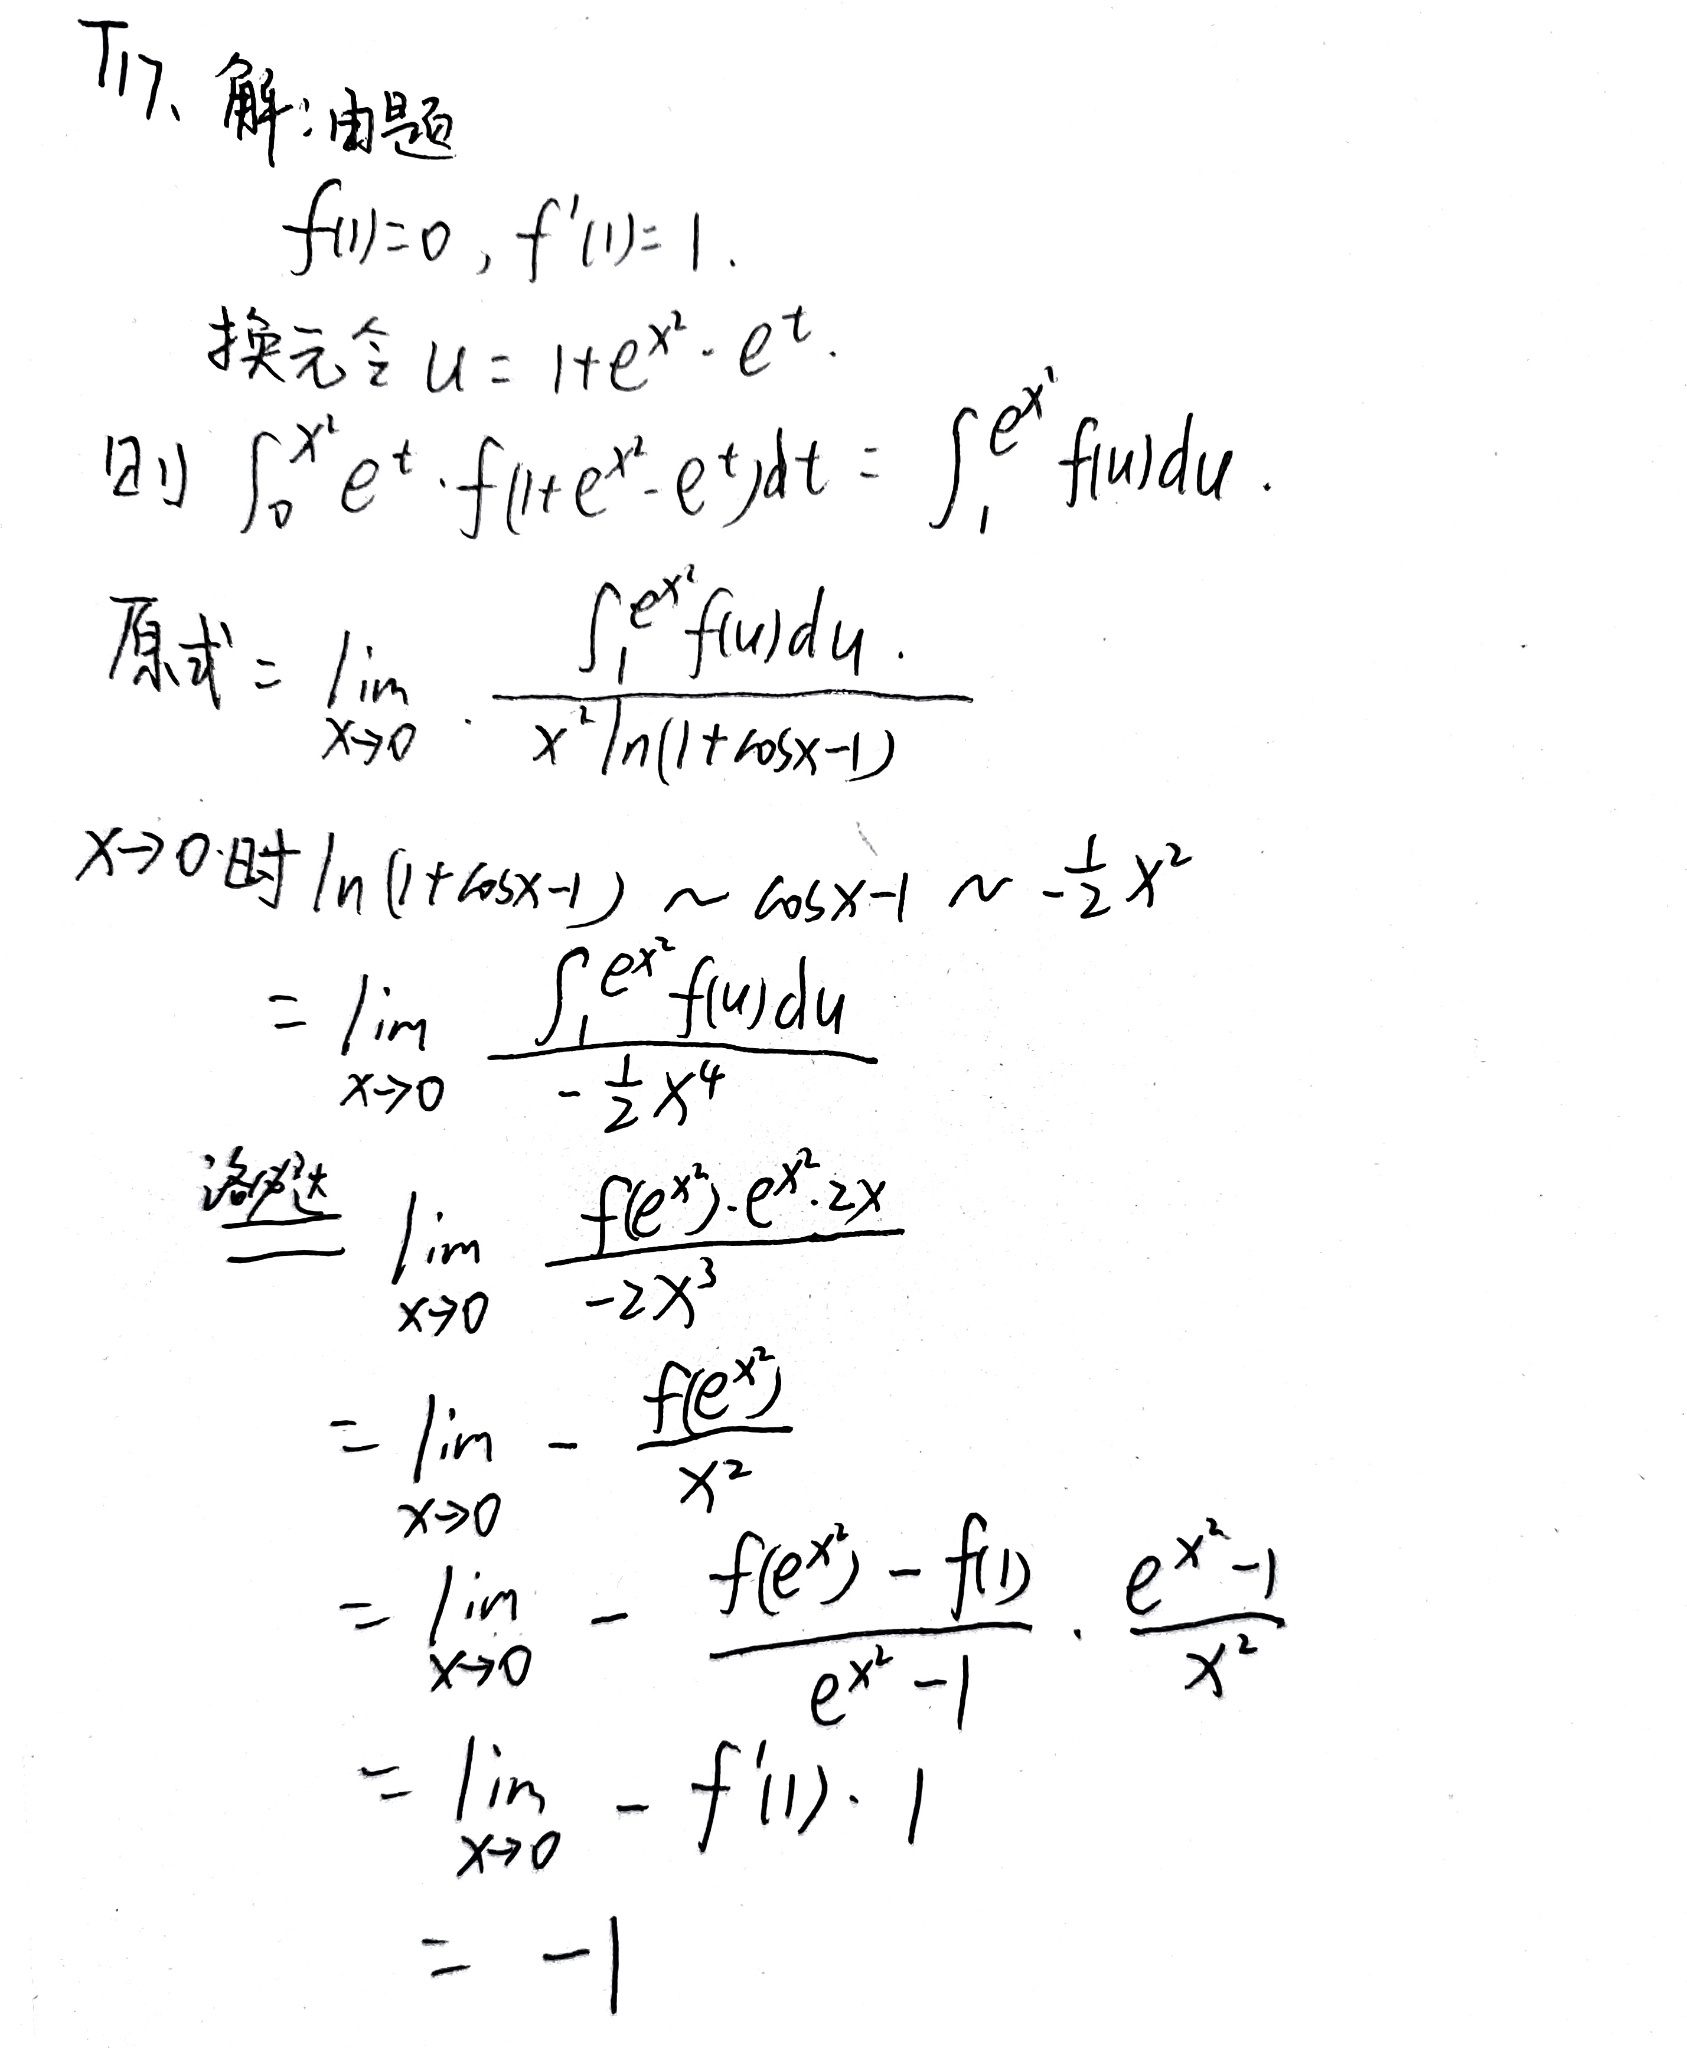 T17、解：由题
f(1)=0, f'(1)=1.
换元令 u = 1+e^{x^2} - e^t.
则 ∫_0^{x^2} e^t · f(1+e^{x^2}-e^t)dt = ∫_1^{e^{x^2}} f(u)du.
原式 = lim_{x→0} \frac{∫_1^{e^{x^2}} f(u)du.}{x^2 ln(1+cosx-1)}
x→0时 ln(1+cosx-1) ~ cosx-1 ~ -\frac{1}{2}x^2
= lim_{x→0} \frac{∫_1^{e^{x^2}} f(u)du}{-\frac{1}{2}x^4}
洛必达 = lim_{x→0} \frac{f(e^{x^2})·e^{x^2}·2x}{-2x^3}
= lim_{x→0} - \frac{f(e^{x^2})}{x^2}
= lim_{x→0} - \frac{f(e^{x^2}) - f(1)}{e^{x^2}-1} · \frac{e^{x^2}-1}{x^2}
= lim_{x→0} - f'(1)·1
= -1